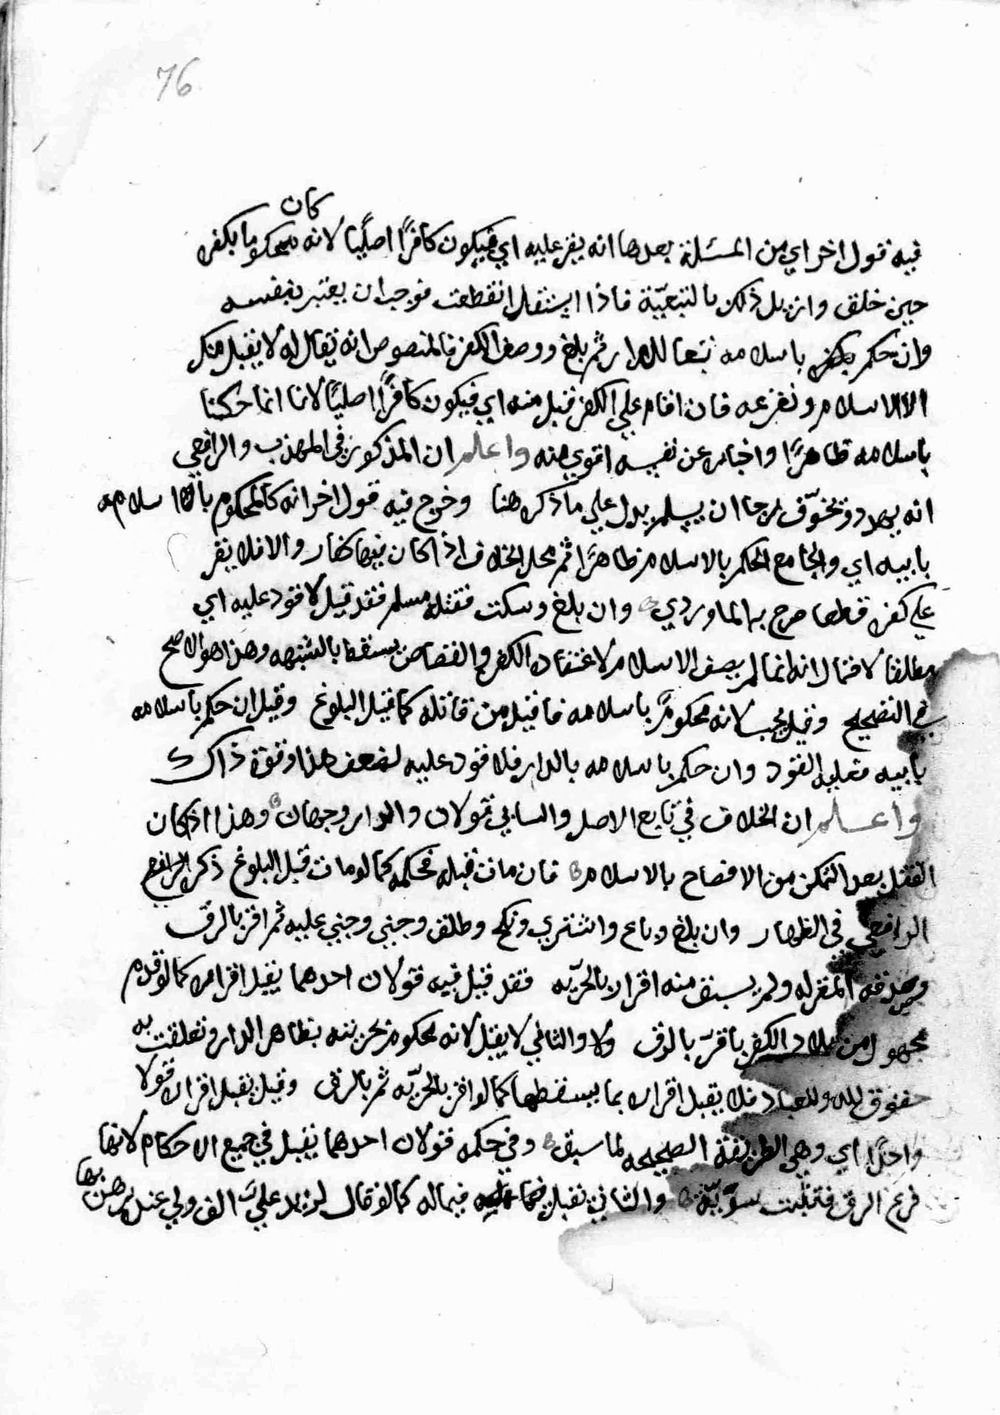 76
كان
فيه قول اخر اي من المسئلة بعدها انه يقر عليه اي فيكون كافرًا اصليًا لانه محكوما بكفره
حين خلق وازيل ذلك بالتبعيّة فاذا استقل انقطعت فوجب ان يعتبر بنفسه
وان حكم بكفر باسلامه تبعا للدار ثم بلغ ووصف الكفر فالمنصوص انه يقال له لا يقبل منك
الا الاسلام ونفزعه فان اقام علي الكفر قبل منه اي فيكون كافرًا اصليًا لانا انما حكمنا
باسلامه ظاهرًا واخباره عن نفسه اقوي منه واعلم ان المذكور في المهذب والرافعي
انه يهدد ويخوّف رجا ان يسلم يدل علي ما ذكر هنا وخرج فيه قول اخر انه كالمحكوم باسلامه
بابيه اي والجامع الحكم بالاسلام ظاهرًا ثم محل الخلاف اذا كان فيها كفار والا فلا يقر
علي كفره قطعا صرح به الماوردي وان بلغ وسكت فقتله مسلم فقد قيل لا قود عليه اي
مطلقا لاحتمال انه انما لم يصف الاسلام لاعتقاده الكفر والقصاص يسقط بالشبهه وهذا هو الاصح
في التصحيح وقيل يجب لانه محكوم باسلامه فاقيد من قاتله كما قبل البلوغ وقيل ان حكم باسلامه
بابيه فعليه القود وان حكم باسلامه بالدار فلا قود عليه لضعف هذا وقوة ذاك
واعلم ان الخلاف في تابع الاصل والسابي قولان والدار وجهان وهذا اذا كان
القتل بعد التمكن من الافصاح بالاسلام فان مات قبله فحكمه كما لو مات قبل البلوغ ذكره الرافعي
الرافعي في الظهار وان بلغ وباع واشتري ونكح وطلق وجنى وجني عليه ثم اقر بالرق
وصدقه المقر له ولم يسبق منه اقرار بالحريّه فقد قيل فيه قولان احدهما يقبل اقراره كما لو قدم
مجهول من بلاد الكفر فاقرّ بالرق ولا والثاني لا يقبل لانه محكوم بحريته بظاهر الدار وتعلقت به
حقوق لله وللعباد فلا يقبل اقراره بما يسقطها كما لو اقر بالحريّه ثم بالرق وقيل يقبل اقراره قولا
واحدًا اي وهي الطريقة الصحيحه لما سبق وفي حكمه قولان احدهما يقبل في جميع الاحكام لانها
فرع الرق فتثبت بثبوته والثاني يقبل فيما عليه فيما له كما لو قال لزيد عليّ الف ولي عنده رهن بها